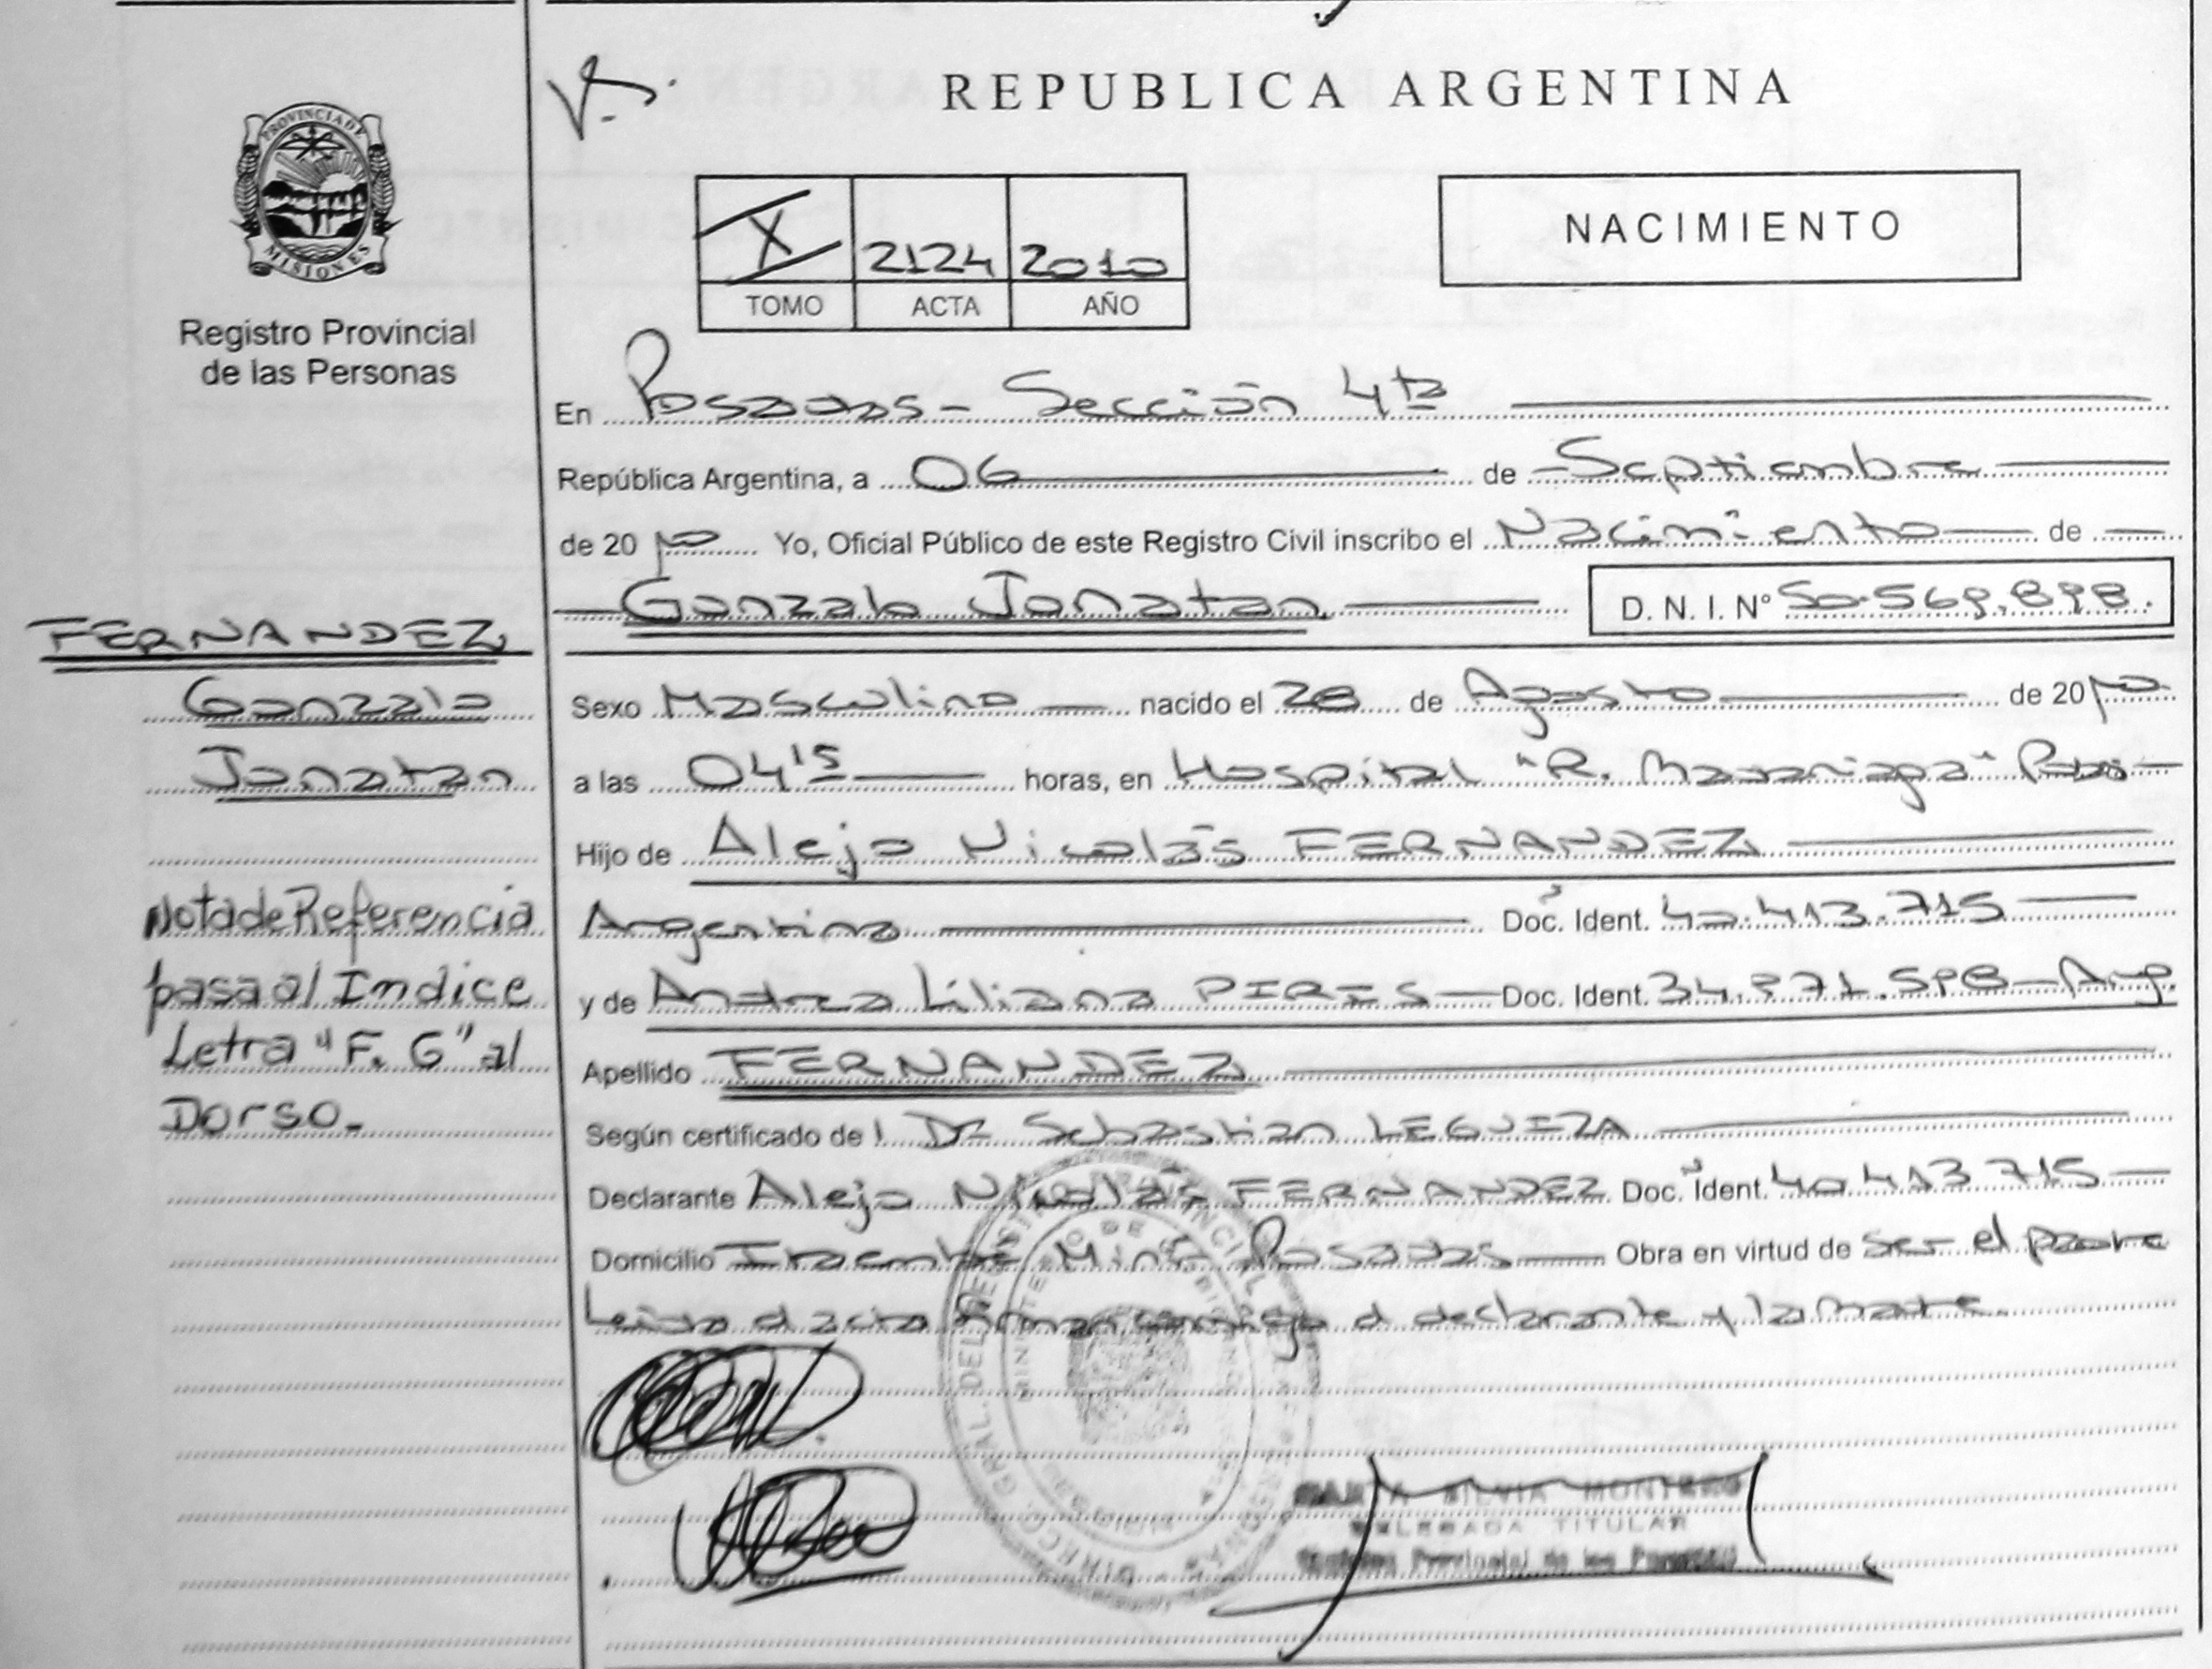 REPUBLICA ARGENTINA
PROVINCIA DE
MISIONES
Registro Provincial
de las Personas
X 2124 2010
TOMO ACTA AÑO
NACIMIENTO
En Posadas - Sección 4ta
República Argentina, a 06 de Septiembre
de 2010 Yo, Oficial Público de este Registro Civil inscribo el Nacimiento de
Gonzalo Jonatan D. N. I. N° 50.569.898.
Sexo Masculino nacido el 28 de Agosto de 2010
a las 04 15 horas, en Hospital "R. Madariaga"
Hijo de Alejo Nicolás FERNANDEZ
Argentino Doc. Ident. 40.413.715
y de Andrea Liliana PIRES Doc. Ident. Arg.
Apellido FERNANDEZ
Según certificado de l Dr Sebastian LEGUIZA
Declarante Alejo Nicolás FERNANDEZ Doc. Ident. 40 413 715
Domicilio Posadas Obra en virtud de ser el padre
Leida el acta firman conmigo el declarante y la madre.
FERNANDEZ
Gonzalo
Jonatan
Nota de Referencia
pasa al Indice
Letra "F. G" al
Dorso
SILVIA MONTERO
DELEGADA TITULAR
Registro Provincial de las Personas